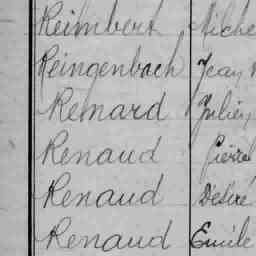 Reimbert Miche
Reingenbach Jean
Remard Julien
Renaud Pierre
Renaud Désiré
Renaud Emile